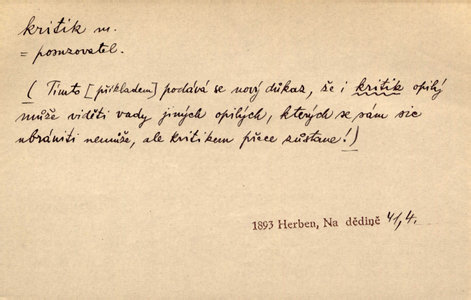 kritik m.
= posuzovatel.
( Tímto [příkladem] podává se nový důkaz, že i kritik opilý
může viděti vady jiných opilých, kterých se sám sic
ubrániti nemůže, ale kritikem přece zůstane!)
1893 Herben, Na dědině 41,4.